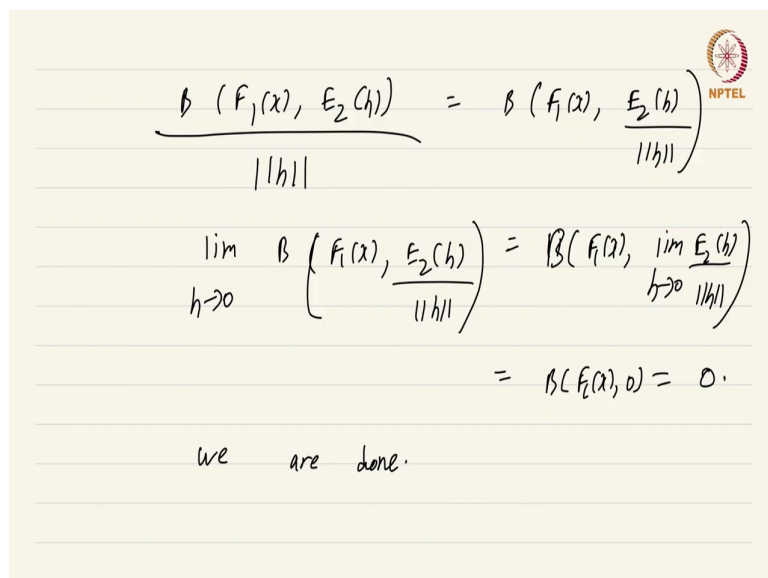 B (F₁(x), E₂(h)) / ||h|| = B (F₁(x), E₂(h) / ||h||)
lim h→0 B (F₁(x), E₂(h) / ||h||) = B(F₁(x), lim h→0 E₂(h) / ||h||)
= B(F₁(x), 0) = 0.
we are done.
NPTEL